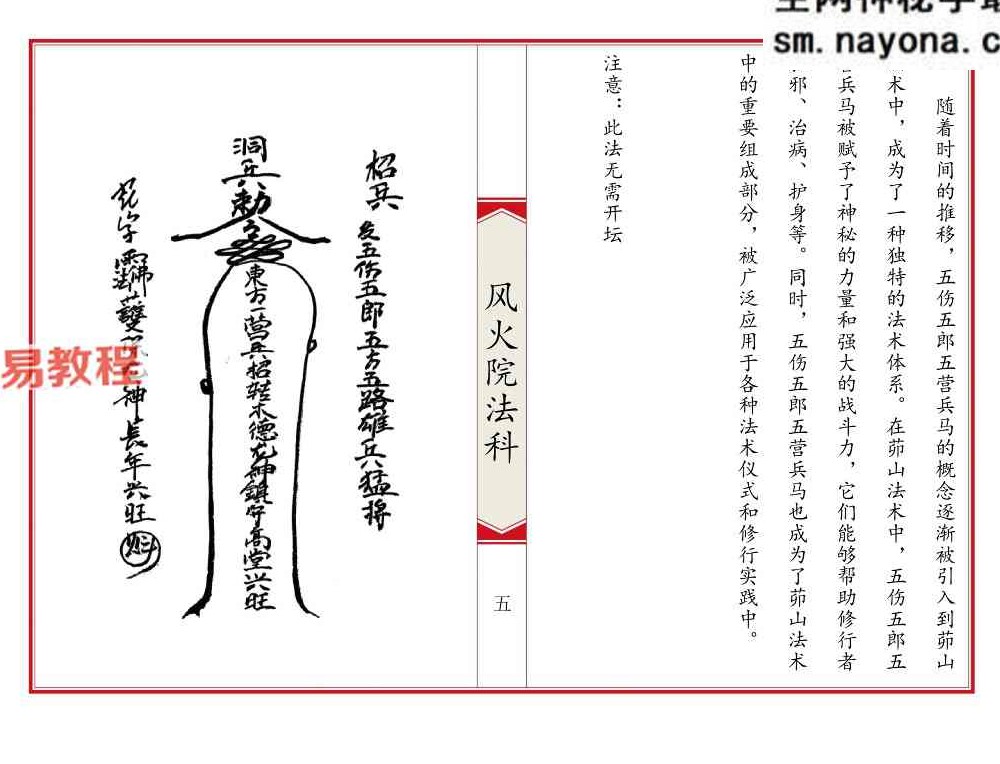 sm.nayona.c
随着时间的推移，五伤五郎五营兵马的概念逐渐被引入到茆山
术中，成为了一种独特的法术体系。在茆山法术中，五伤五郎五
兵马被赋予了神秘的力量和强大的战斗力，它们能够帮助修行者
邪、治病、护身等。同时，五伤五郎五营兵马也成为了茆山法术
中的重要组成部分，被广泛应用于各种法术仪式和修行实践中。
注意：此法无需开坛
风火院法科
五
招兵
五伤五郎五方五路雄兵猛将
洞兵勅令
東方一营兵招转木德龙神鎮守高堂兴旺
神長年兴旺
易教程